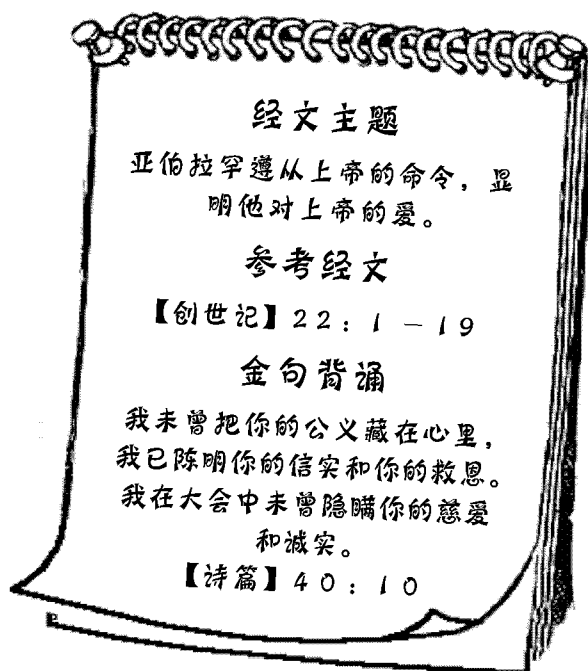 经文主题
亚伯拉罕遵从上帝的命令，显
明他对上帝的爱。
参考经文
【创世记】22：1－19
金句背诵
我未曾把你的公义藏在心里，
我已陈明你的信实和你的救恩。
我在大会中未曾隐瞒你的慈爱
和诚实。
【诗篇】40：10